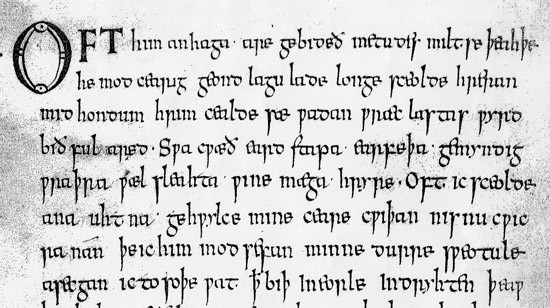 OFT him anhaga · are gebideð metudes miltse þeah þe
he mod cearig geond lagu lade longe sceolde hreran
mid hondum hrim cealde sæ ƿadan ƿræc lastas ƿyrd
bið ful aræd · Sƿa cƿæð eard stapa earfeþa · gemyndig
ƿraþra ƿæl sleahta ƿine mæga hryre · Oft ic sceolde
ana uhtna gehƿylce mine ceare cƿiþan nis nu cƿic
ra nan þe ic him mod sefan minne durre sƿeotule
asecgan ic to soþe ƿat · ꝥ biþ in eorle indryhten þeaƿ